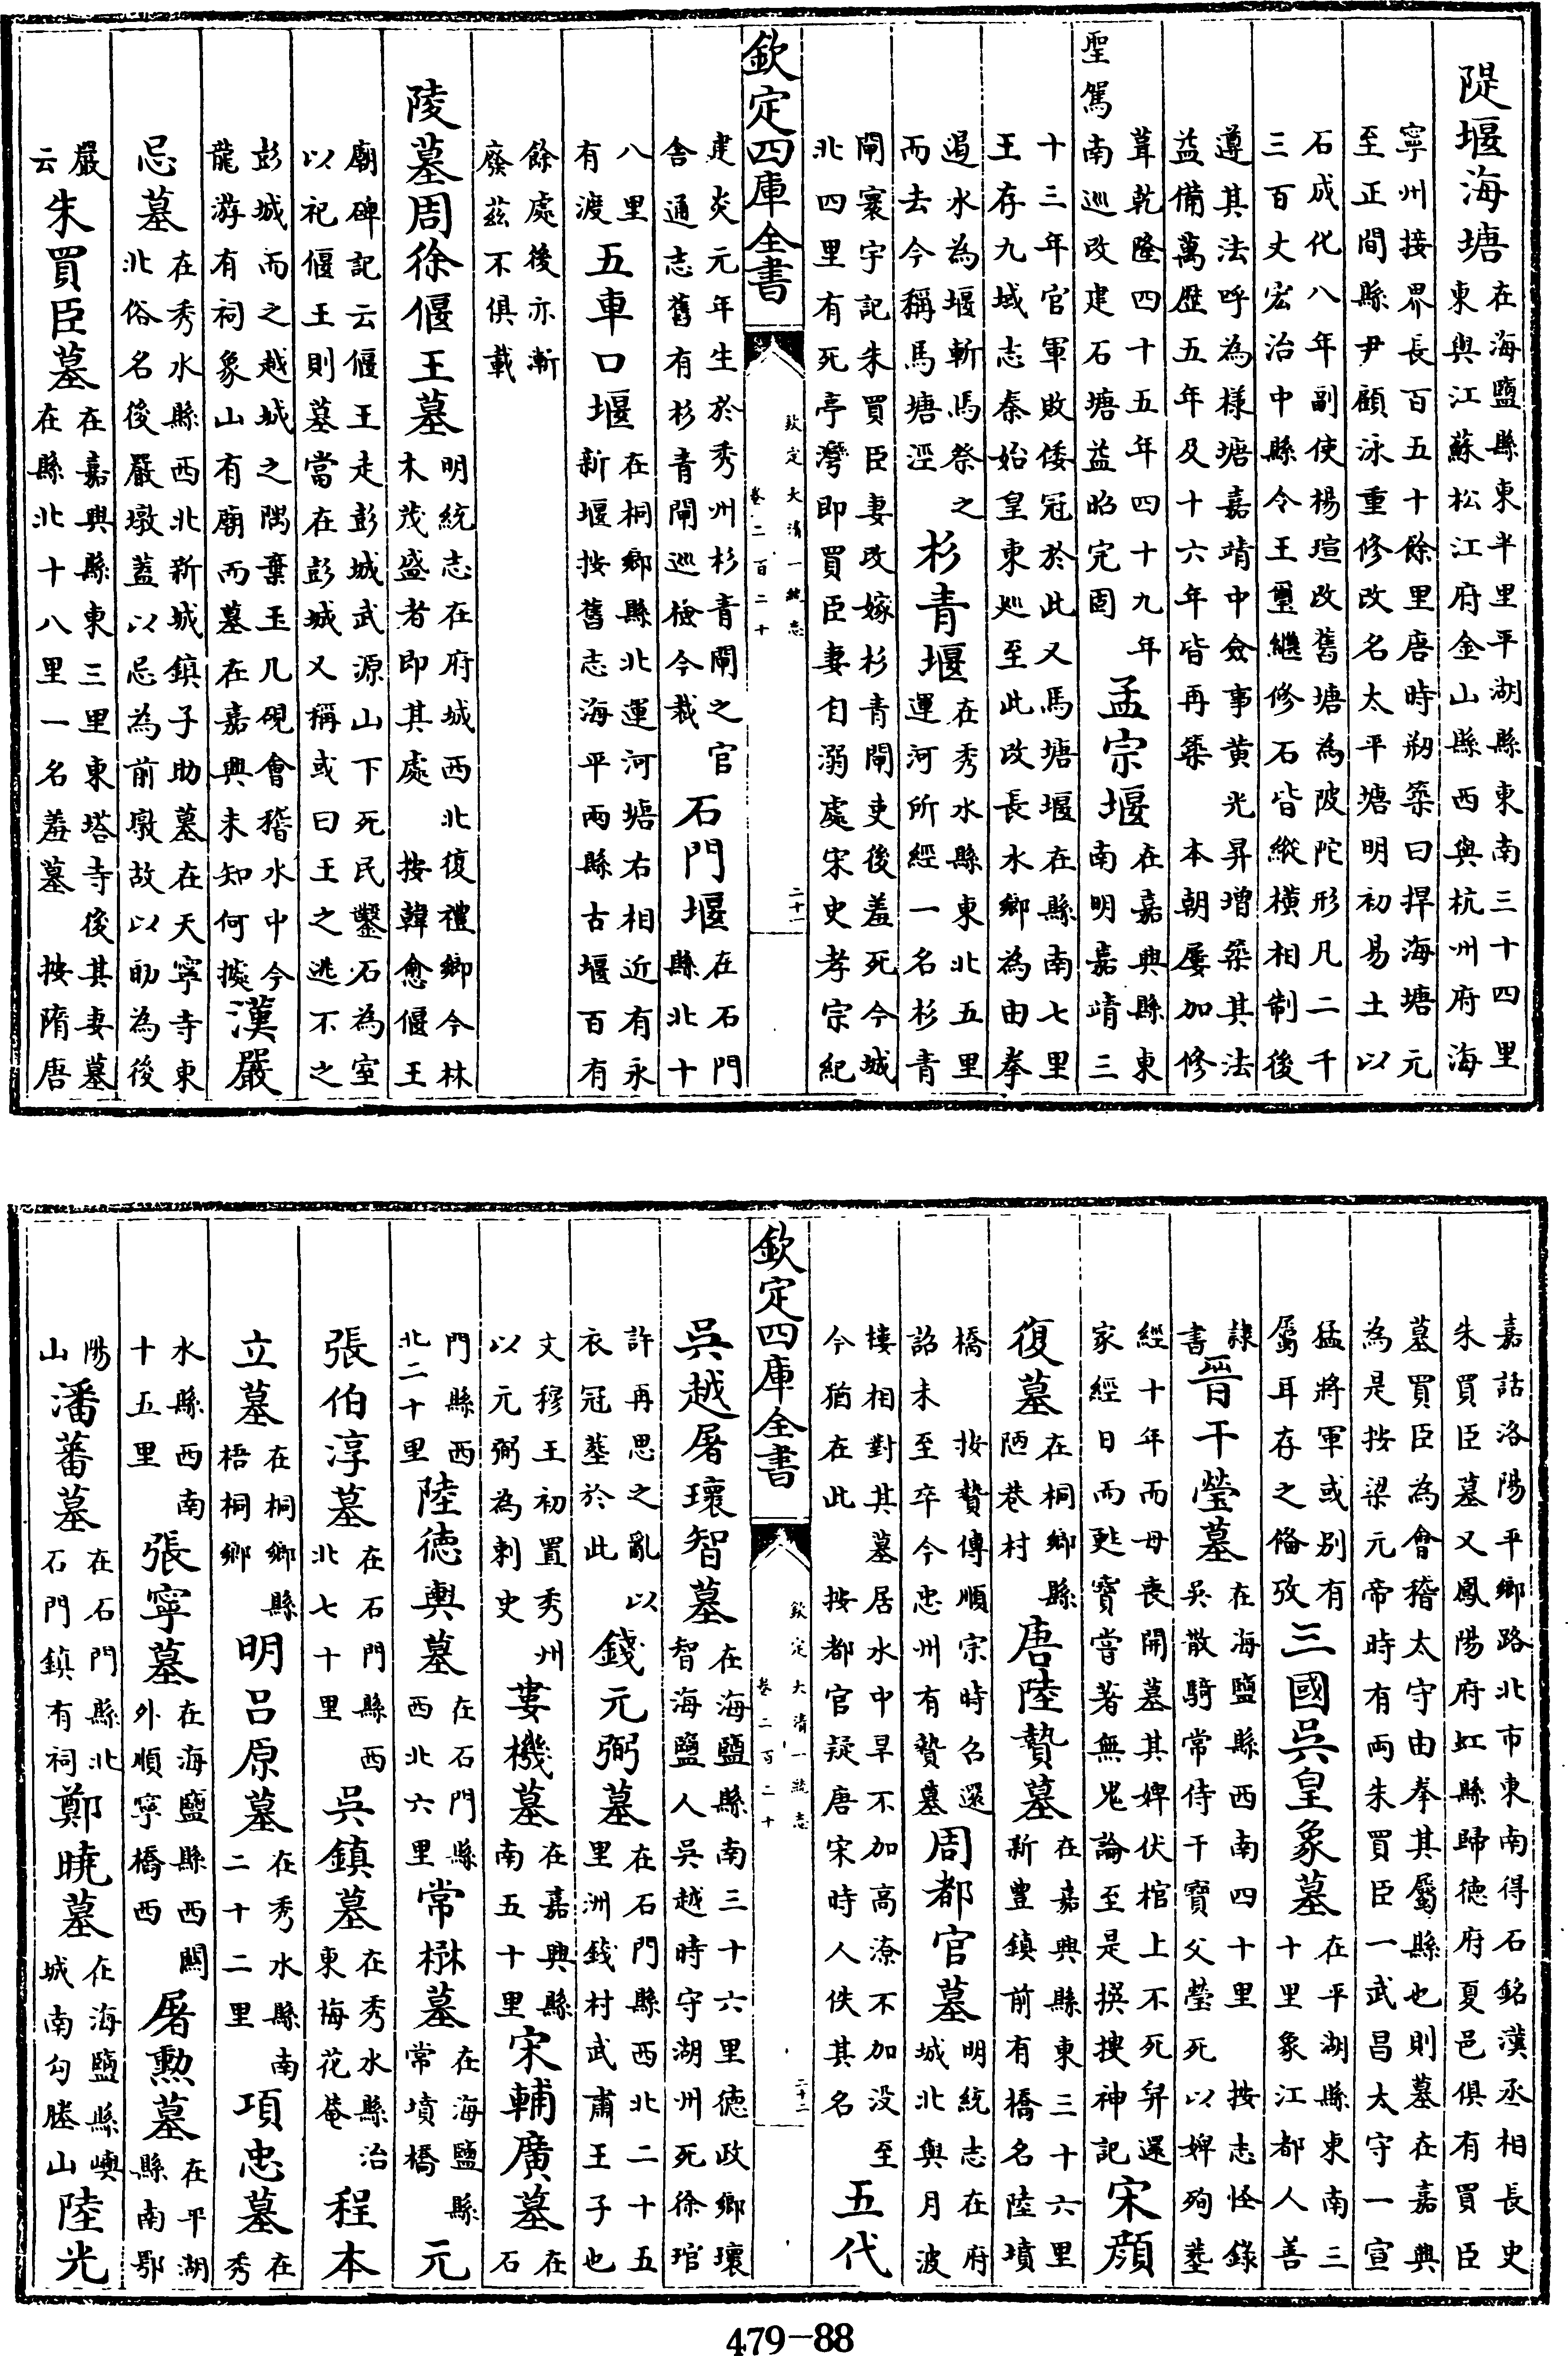 隄堰海塘
在海鹽縣東半里平湖縣東南三十四里
東與江蘇松江府金山縣西與杭州府海
寧州接界長百五十餘里唐時剏築曰捍海塘元
至正間縣尹顧泳重修改名太平塘明初易土以
石成化八年副使楊瑄改舊塘為陂陀形凡二千
三百丈宏治中縣令王璽繼修石皆縱橫相制後
遵其法呼為樣塘嘉靖中僉事黃光昇增築其法
益備萬歷五年及十六年皆再築 本朝屢加修
葺乾隆四十五年四十九年
聖駕南巡改建石塘益昭完固
孟宗堰
在嘉興縣東
南明嘉靖三
十三年官軍敗倭冦於此又馬塘堰在縣南七里
王存九域志秦始皇東廵至此改長水鄉為由拳
遏水為堰斬馬祭之
而去今稱馬塘涇
杉青堰
在秀水縣東北五里
運河所經一名杉青
閘寰宇記朱買臣妻改嫁杉青閘吏後羞死今城
北四里有死亭灣即買臣妻自溺處宋史孝宗紀
欽定四庫全書
欽定大清一統志
卷二百二十
二十一
建炎元年生於秀州杉青閘之官
舍通志舊有杉青閘巡檢今裁
石門堰
在石門
縣北十
八里
有渡
五車口堰
在桐鄉縣北運河塘右相近有永
新堰按舊志海平兩縣古堰百有
餘處後亦漸
廢茲不俱載
陵墓周徐偃王墓
明統志在府城西北復禮鄉今林
木茂盛者即其處 按韓愈偃王
廟碑記云偃王走彭城武源山下死民鑿石為室
以祀偃王則墓當在彭城又稱或曰王之逃不之
彭城而之越城之隅棄玉几硯會稽水中今
龍游有祠象山有廟而墓在嘉興未知何據
漢嚴
忌墓
在秀水縣西北新城鎮子助墓在天寧寺東
北俗名後嚴墩蓋以忌為前墩故以助為後
嚴
云
朱買臣墓
在嘉興縣東三里東塔寺後其妻墓
在縣北十八里一名羞墓 按隋唐
嘉話洛陽平鄉路北市東南得石銘漢丞相長史
朱買臣墓又鳳陽府虹縣歸德府夏邑俱有買臣
墓買臣為會稽太守由拳其屬縣也則墓在嘉興
為是按梁元帝時有兩朱買臣一武昌太守一宣
猛將軍或別有
屬耳存之俻攷
三國吳皇象墓
在平湖縣東南三
十里象江都人善
隸
書
晉干瑩墓
在海鹽縣西南四十里 按志怪錄
吳散騎常侍干寶父瑩死以婢殉葬
經十年而母喪開墓其婢伏棺上不死舁還
家經日而甦寶嘗著無鬼論至是撰搜神記
宋顏
復墓
在桐鄉縣
陋巷村
唐陸贄墓
在嘉興縣東三十六里
新豊鎮前有橋名陸墳
橋 按贄傳順宗時召還
詔未至卒今忠州有贄墓
周都官墓
明統志在府
城北與月波
樓相對其墓居水中旱不加高潦不加没至
今猶在此 按都官疑唐宋時人佚其名
五代
欽定四庫全書
欽定大清一統志
卷二百二十
二十二
吳越屠瓌智墓
在海鹽縣南三十六里德政鄉瓌
智海鹽人吳越時守湖州死徐琯
許再思之亂以
衣冠葬於此
錢元弼墓
在石門縣西北二十五
里洲錢村武肅王子也
文穆王初置秀州
以元弼為刺史
婁機墓
在嘉興縣
南五十里
宋輔廣墓
在
石
門縣西
北二十里
陸德輿墓
在石門縣
西北六里
常楙墓
在海鹽縣
常墳橋
元
張伯淳墓
在石門縣西
北七十里
吳鎮墓
在秀水縣治
東梅花菴
程本
立墓
在桐鄉縣
梧桐鄉
明呂原墓
在秀水縣南
二十二里
項忠墓
在
秀
水縣西南
十五里
張寧墓
在海鹽縣西關
外順寧橋西
屠勲墓
在平湖
縣南鄂
陽
山
潘蕃墓
在石門縣北
石門鎮有祠
鄭曉墓
在海鹽縣㠘
城南勾塍山
陸光
479-88